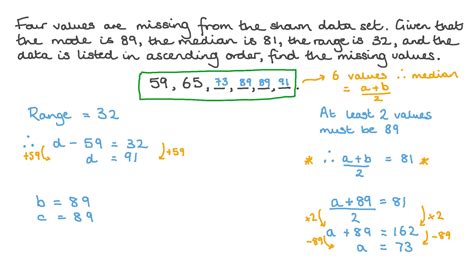 Four values are missing from the shown data set. Given that
the mode is 89, the median is 81, the range is 32, and the
data is listed in ascending order, find the missing values.
59, 65, 73, 89, 89, 91.
→ 6 values ∴ median
= a+b
2
Range = 32
At least 2 values
must be 89
∴ d - 59 = 32
+59
d = 91
+59
* ∴ a+b = 81 *
2
b = 89
c = 89
a + 89 = 81
2
×2
×2
a + 89 = 162
-89
-89
a = 73